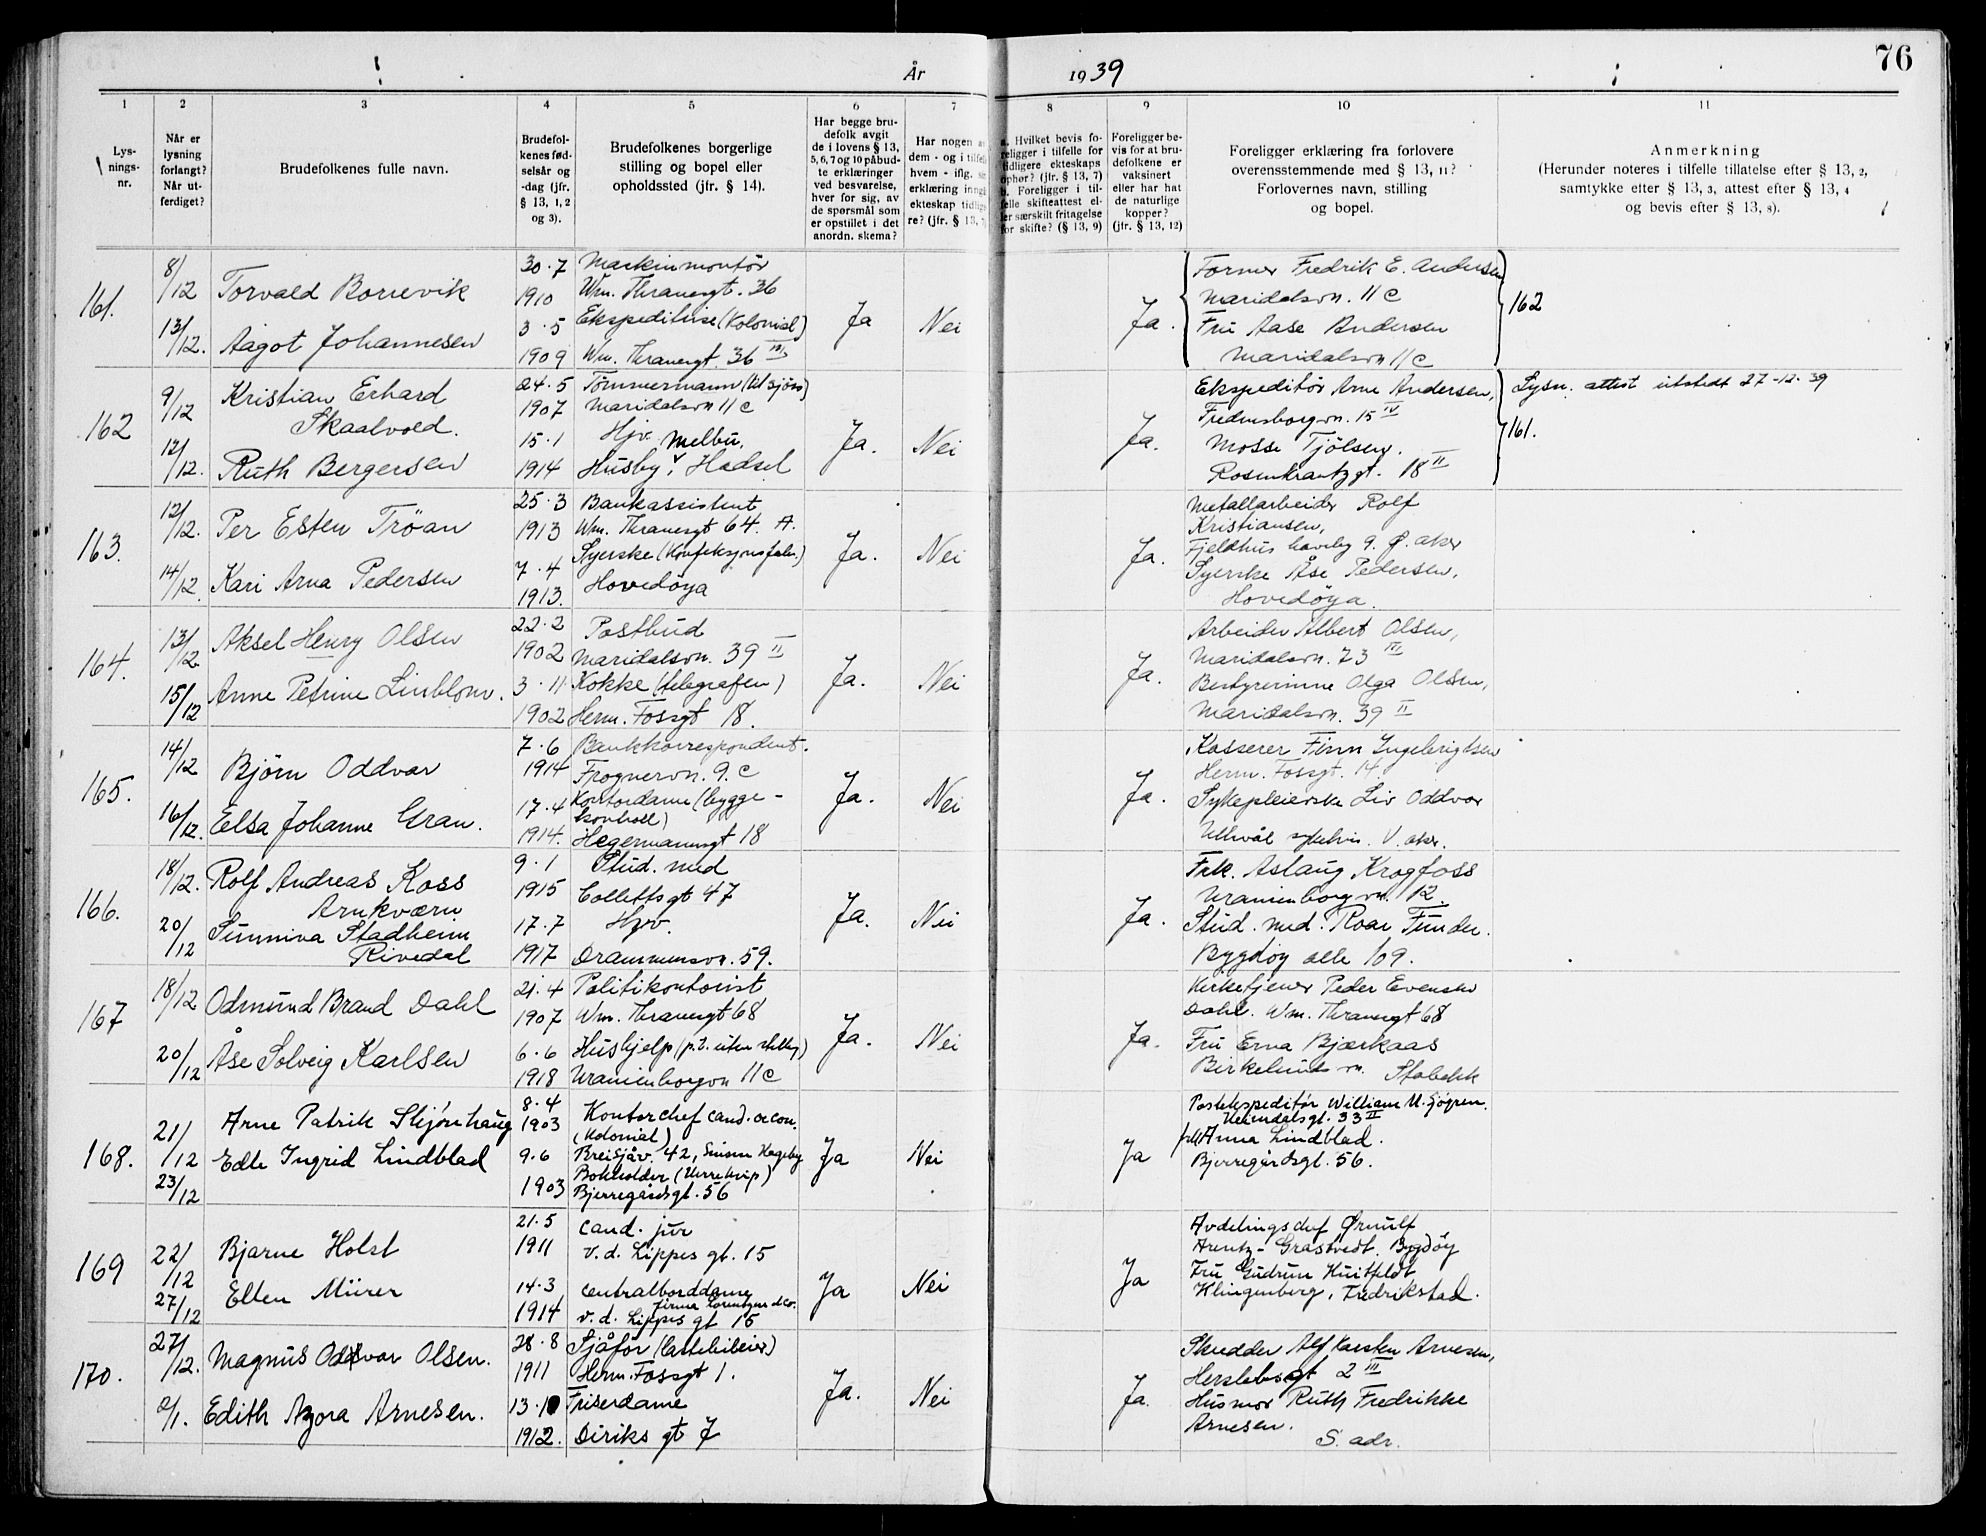 76
År 1939
1 2 3 4 5 6 7 8 9 10 11
Lys-
nings-
nr.
Når er
lysning
forlangt?
Når ut-
ferdiget?
Brudefolkenes fulle navn.
Brudefol-
kenes fød-
selsår og
-dag (jfr.
§ 13, 1, 2
og 3).
Brudefolkenes borgerlige
stilling og bopel eller
opholdssted (jfr. § 14).
Har begge bru-
defolk avgit
de i lovens § 13,
5, 6, 7 og 10 påbud-
te erklæringer
ved besvarelse,
hver for sig, av
de spørsmål som
er opstillet i det
anordn. skema?
Har nogen a
dem - og i tilfelle
hvem - iflg. 
erklæring inngå
ekteskap tidlige
re? (jfr. § 13, 7)
a. Hvilket bevis fo-
religger i tilfelle for
tidligere ekteskaps
ophør? (jfr. § 13, 7)
b. Foreligger i til-
felle skifteattest el-
ler særskilt fritagelse
for skifte? (§ 13, 9)
Foreligger be-
vis for at bru-
defolkene er
vaksinert
eller har hat
de naturlige
kopper?
(jfr. § 13, 12)
Foreligger erklæring fra forlovere
overensstemmende med § 13, 11?
Forlovernes navn, stilling
og bopel.
Anmerkning
(Herunder noteres i tilfelle tillatelse efter § 13, 2,
samtykke etter § 13, 3, attest efter § 13, 4
og bevis efter § 13, 8).
161.
8/12
13/12.
Torvald Borrevik
Aagot Johannesen
30.7
1910
3.5
1909
Maskinmontør
Wm. Thranesgt. 36
Ekspeditrise (Kolonial)
Wm. Thranesgt. 36 III
Ja
Nei
Ja.
Former Fredrik E. Andersen
Maridalsvn. 11 c
Fru Aase Andersen
Maridalsvn 11 c
162
162
9/12
12/12.
Kristian Erhard
Skaalvold.
Ruth Bergersen
24.5
1907
15.1
1914
Tømmermann (til sjøss)
Maridalsvn 11 c
Hjv. Melbu,
Husby, Hadsel
Ja.
Nei
Ja.
Ekspeditør Arne Andersen,
Fredensborgvn. 15 IV
Mosse Tjølsen.
Rosenkrantzgt. 18 II
Lysn. attest utstedt 27-12-39
161.
163.
12/12.
14/12.
Per Esten Trøan
Kari Arna Pedersen
25.3
1913
7.4
1913.
Bankassistent
Wm. Thranesgt 64. A.
Syerske (Konfeksjonsfabr.)
Hovedøya
Ja.
Nei
Ja.
Metallarbeider Rolf
Kristiansen,
Fjeldhus haveby 9. Ø. aker
Syerske Åse Pedersen,
Hovedøya.
164.
13/12
15/12
Aksel Henry Olsen
Anne Petrine Linblom.
22.2
1902
3.11
1902
Postbud
Maridalsvn. 39 II
Kokke (telegrafen)
Herm. Fossgt 18.
Ja.
Nei
Ja.
Arbeider Albert Olsen,
Maridalsvn. 73 IV
Bestyrerinne Olga Olsen,
Maridalsvn. 39 II
165.
14/12
16/12.
Bjørn Oddvar
Eelsa Johanne Gran.
7.6
1914
17.4
1914.
Bankkorrespondent.
Frognervn. 9. c
Kontordame (bygge-
kontroll)
Hegermannsgt 18
Ja.
Nei
Ja.
Kasserer Finn Ingebrigtsen
Herm. Fossgt. 14.
Sykepleierske Liv Oddvar
Ullevål sykehus. V. aker.
166.
18/12.
20/12
Rolf Andreas Koss
Arnkværn
Sunniva Stadheim
Rivedal
9.1
1915
17.7
1917
Stud. med
Collettsgt 47
Hjv.
Drammensvn. 59.
Ja.
Nei
Ja.
Frk. Aslaug Krogfoss
Uranienborgvn. 12.
Stud. med. Roar Funder.
Bygdøy alle 109.
167
18/12
20/12
Odmund Brand Dahl
Åse Solveig Karlsen
21.4
1907
6.6
1918
Politikontorist
Wm. Thranesgt 68
Hushjelp (p.t. uten stilling)
Uranienborgvn 11 c
Ja.
Nei
Ja.
Kirketjener Peder Evensen
Dahl. Wm. Thranesgt 68
Fru Erna Bjærkaas
Birkelunds vn. Stabekk
168.
21/12
23/12
Arne Patrik Skjønhaug
Edle Ingrid Lindblad
8.4
1903
9.6
1903
Kontorchef cand. oecon.
(Kolonial)
Breisjåv. 42, Sinsen Hageby
Bokholder
Bjerregårdsgt. 56
Ja
Nei
Ja
Postekspeditør William U. Sjögren.
Heimdalsgt. 33 II
frk Anna Lindblad.
Bjerregårdsgt. 56.
169
22/12
27/12
Bjarne Holst
Ellen Mürer
21.5
1911
14.3
1914
cand. jur
v. d. Lippes gt. 15
Centralborddame
firma Lorentzen & Co.
v. d. Lippes gt 15
Ja
Nei
Ja
Avdelingschef Ørnulf
Arentz-Grastvedt. Bygdøy
Fru Gudrun Huitfeldt
Klingenberg, Fredrikstad.
170.
27/12.
2/1.
Magnus Oddvar Olsen.
Edith Azora Arnesen.
28.8
1911
13.10
1912.
Sjåfør (lastebileier)
Herm. Fossgt 1.
Friserdame
Diriks gt 7
Ja.
Nei
Ja.
Skredder Alf Karsten Arnesen,
Herslebsgt 2 III
Husmor Ruth Fredrikke
Arnesen.
S. adr.